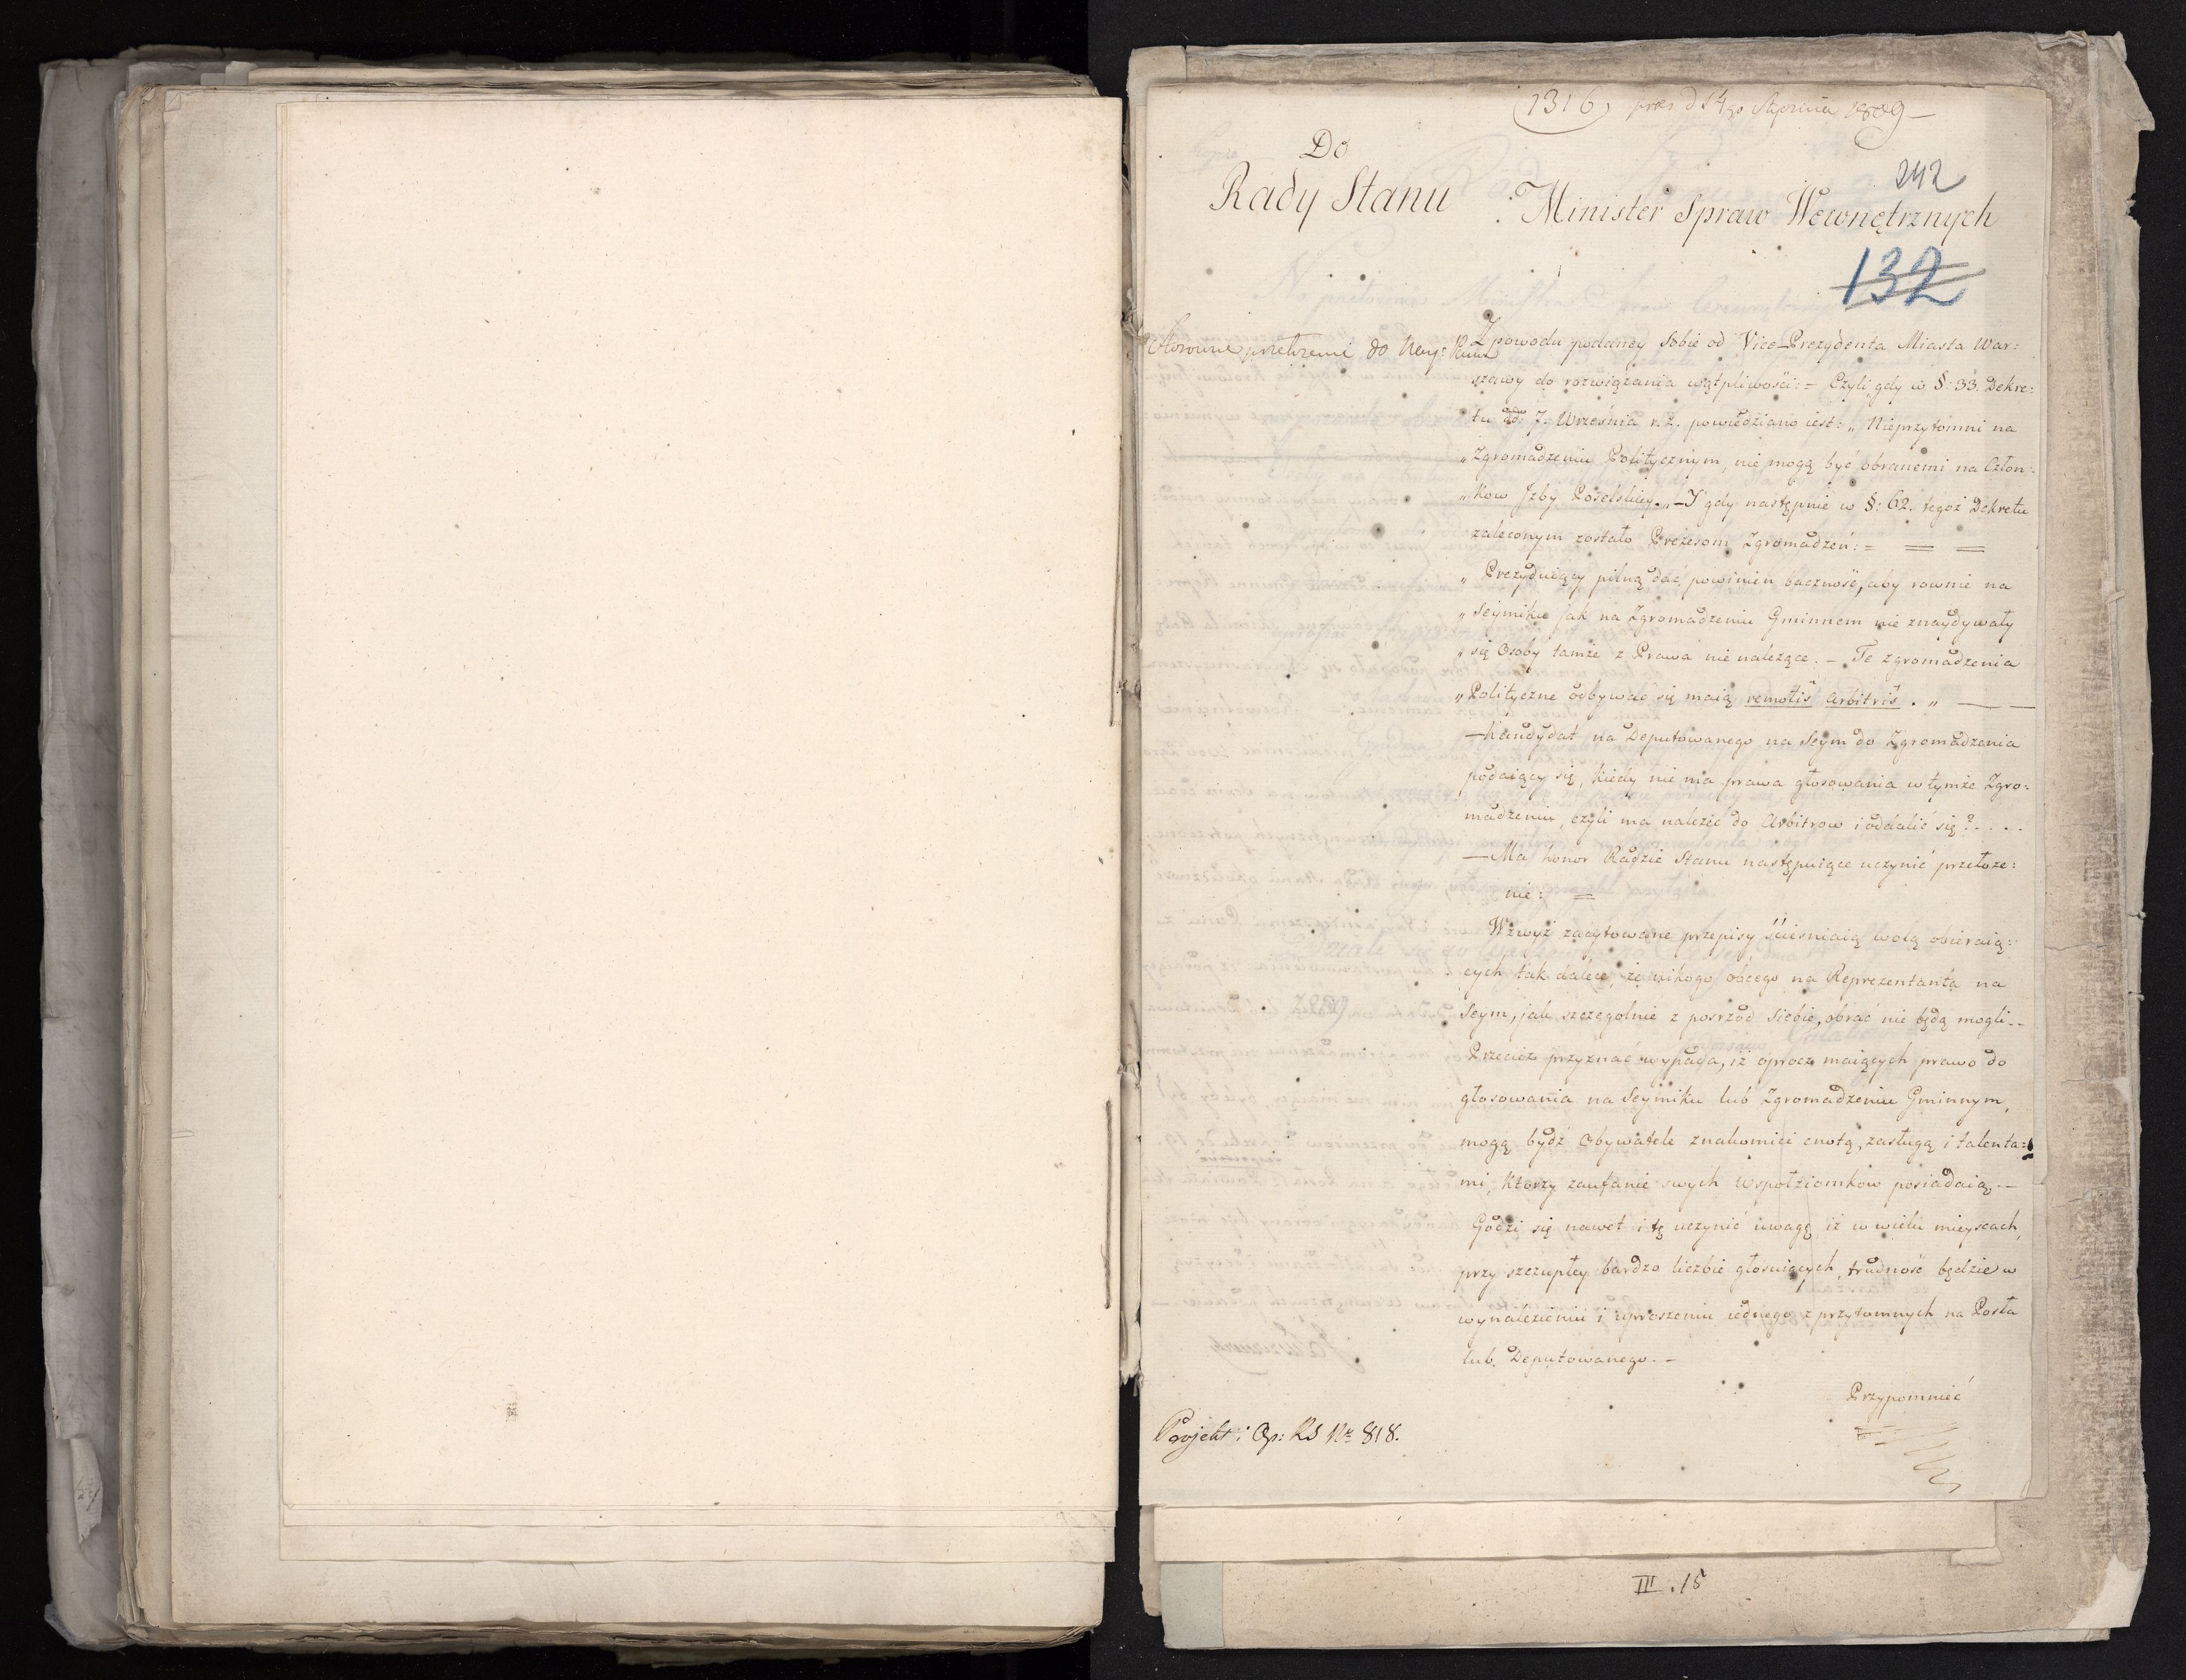 1316 pres d 14go Stycznia 1809 —
Do
Rady Stanu
242
Minister Spraw Wewnętrznych
132
Stosowne przełożenie do Nay: 
Z powodu podaney sobie od Vice-Prezydenta Miasta War:
szawy do rozwiązania wątpliwości: = Czyli gdy w §: 33. Dekre:
tu dd: 7. Września r. z. powiedziano iest: „ Nieprzytomni na
„ Zgromadzeniu Politycznym, nie mogą być obranemi na Człon:
„ kow Izby Poselskiey. „ – I gdy następnie w §: 62. tegoż Dekretu
zaleconym zostało Prezesom Zgromadzeń: = = =
„ Prezyduiący pilną dać powinien baczność, aby rownie na
„ Seymiku jak na Zgromadzeniu Gminnem nie znaydywały
„ się Osoby tamże z Prawa nie należące. – Te zgromadzenia
„ Polityczne odbywać się maią remotis arbitris. „ — —
— Kandydat na Deputowanego na Seym do Zgromadzenia
podaiący się, kiedy nie ma prawa głosowania w tymże Zgro:
madzeniu, czyli ma należeć do Arbitrow i oddalić się? . . . .
— Ma honor Radzie Stanu następuiące uczynić przełoże:
nie: =
Wzwyż zacytowane przepisy ścieśniaią wolą obieraią:
cych tak dalece, że nikogo obcego na Reprezentanta na
Seym, jak szczegolnie z posrzod siebie, obrać nie będą mogli. –
Przecież przyznać wypada, iż oprocz maiących prawo do
głosowania na Seymiku lub Zgromadzeniu Gminnym,
mogą bydź Obywatele znakomici cnotą, zasługą i talenta:
mi, ktorzy zaufanie swych wspołziomkow posiadaią. –
Godzi się nawet i tę uczynić uwagę iż w wielu mieyscach,
przy szczupłey bardzo liczbie głosuiących, trudność będzie w
wynalezieniu i uproszeniu iednego z przytomnych na Posła
lub Deputowanego. –
Przypomnieć
Projekt: Op: RS Nr 818.
III. 15